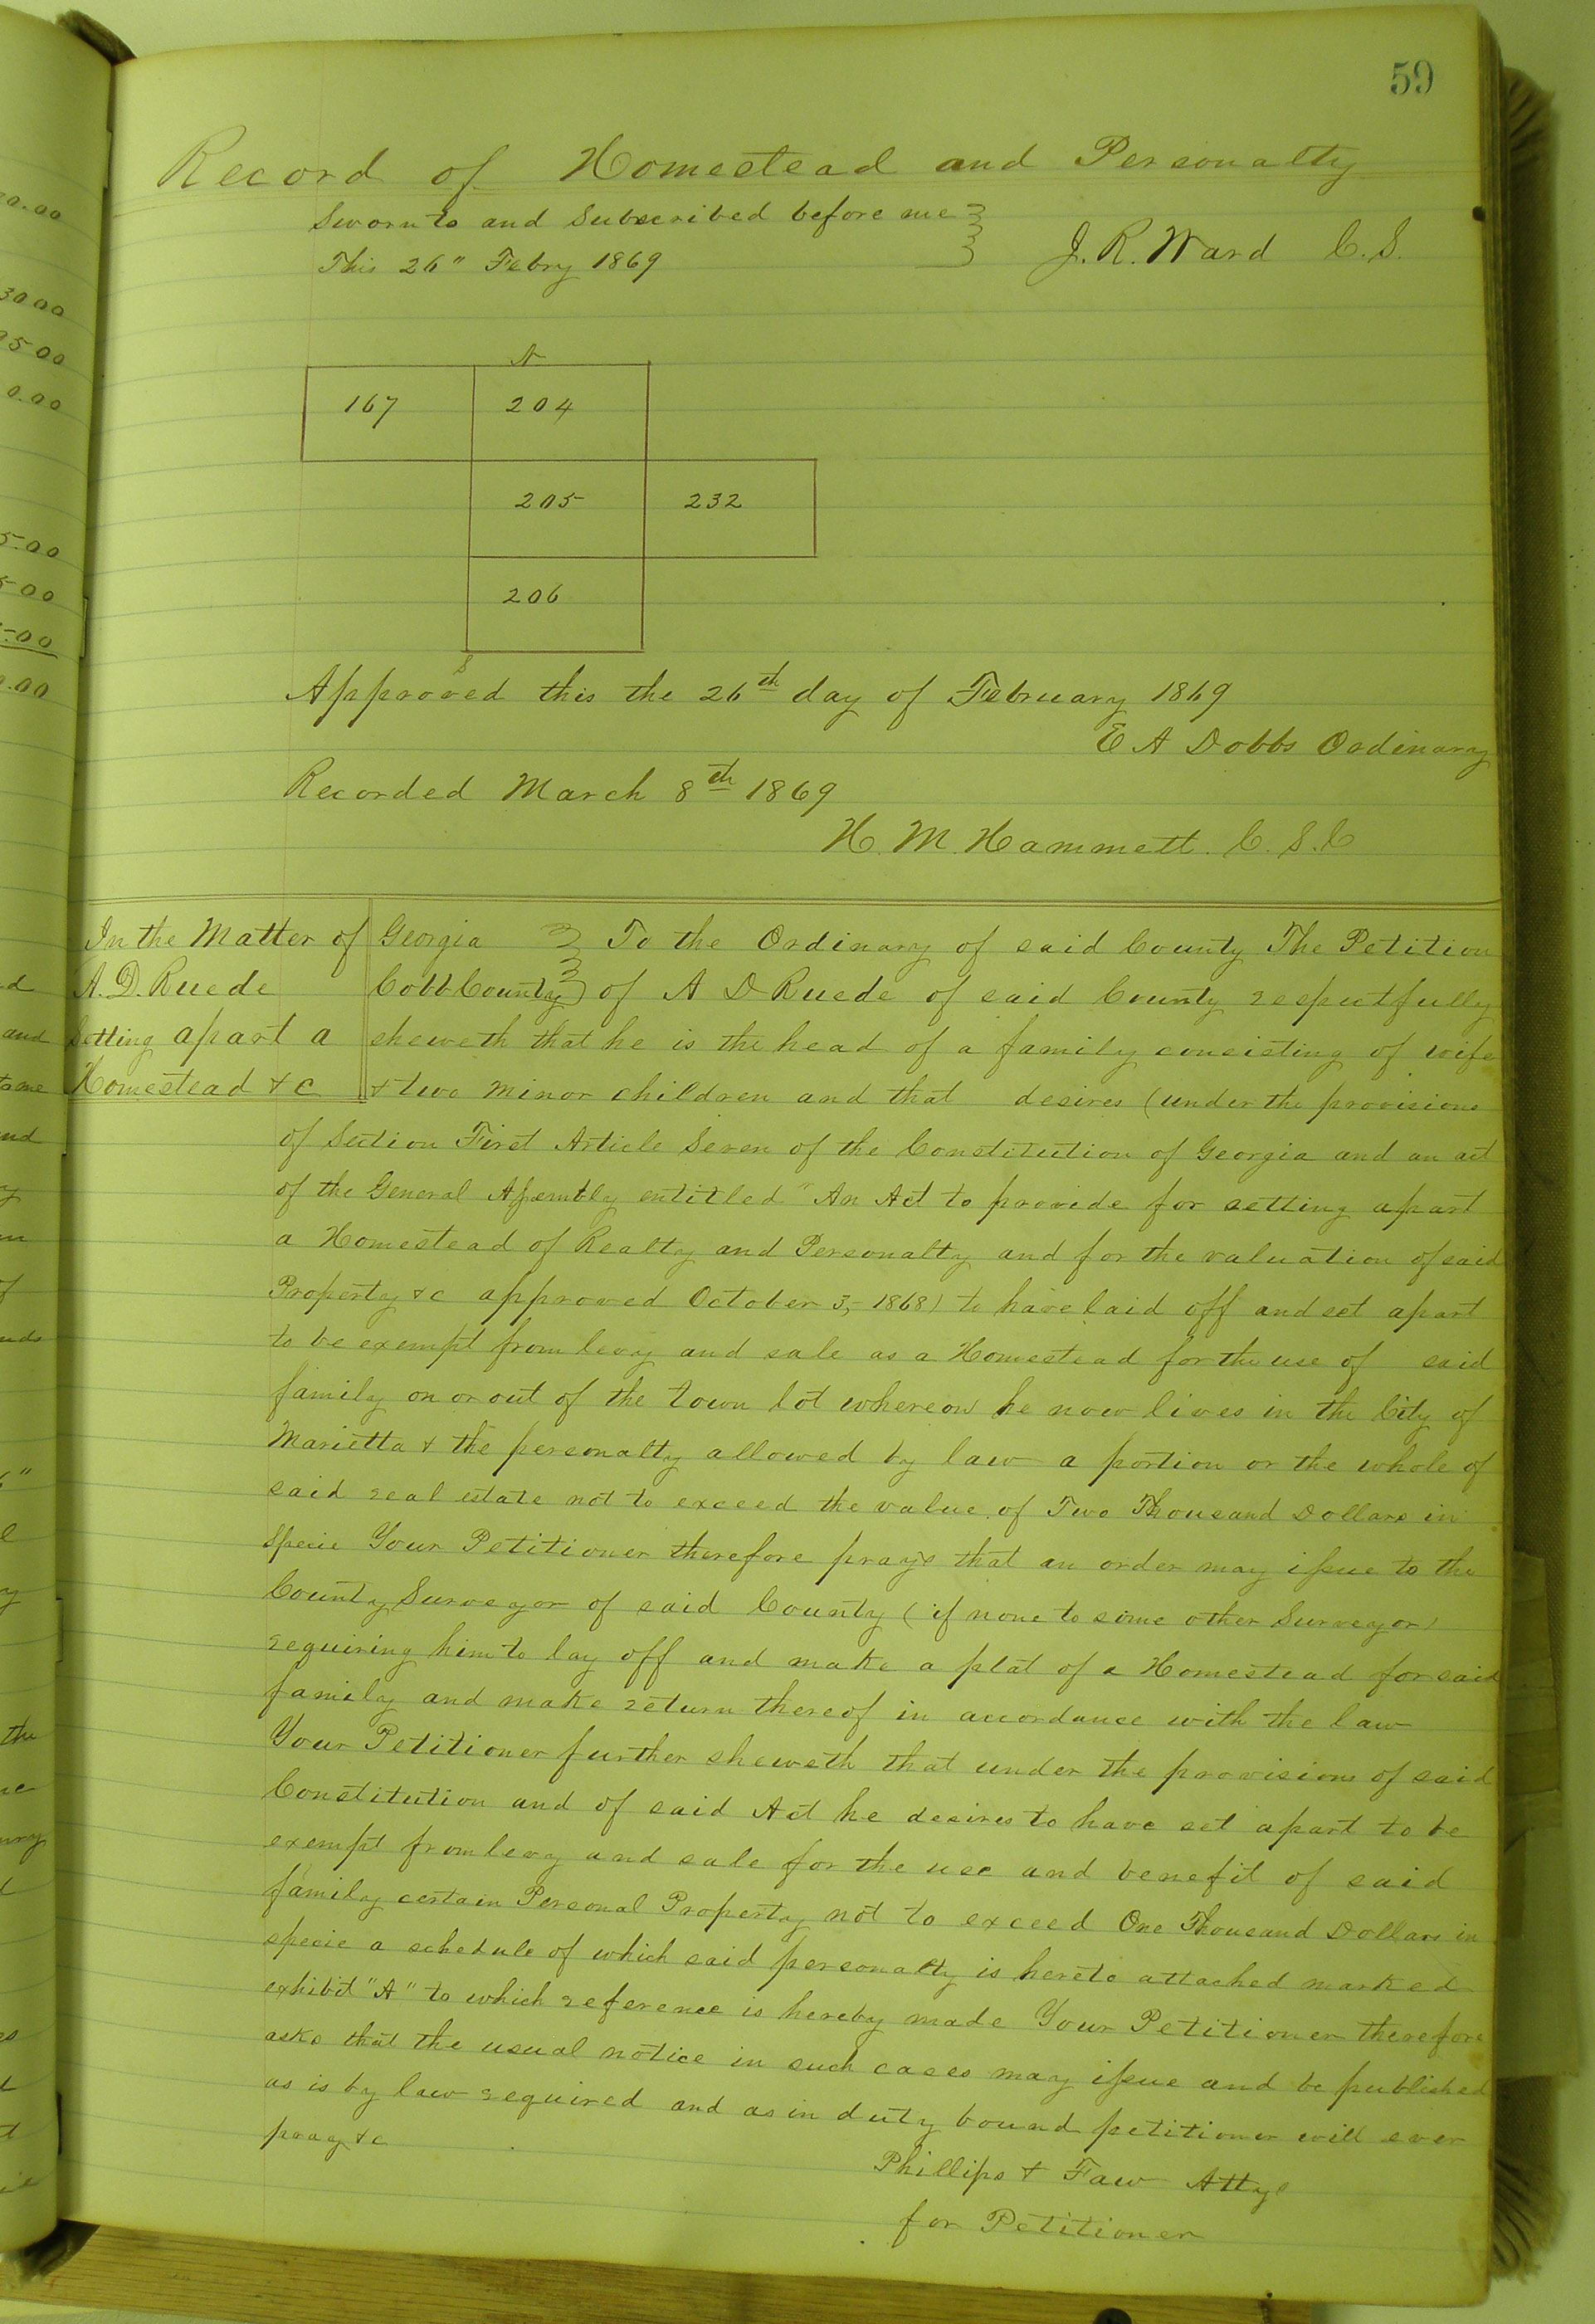 59
Record of Homestead and Personalty
Sworn to and Subscribed before me
This 26" Febry 1869
J. R. Ward C. S.
N
167 204
205 232
206
S
Approved this the 26th day of February 1869
E A Dobbs Ordinary
Recorded March 8th 1869
H. M. Hammett C. S. C
In the Matter of
A. D. Ruede
Setting apart a
Homestead & c
Georgia To the Ordinary of said County The Petition
Cobb County of A D Ruede of said County respectfully
sheweth that he is the head of a family consisting of wife
& two minor children and that desires (under the provisions
of Section First Article Seven of the Constitution of Georgia and an act
of the General Assembly entitled "An Act to provide for setting apart
a Homestead of Realty and Personalty and for the valuation of said
Property & c approved October 3, 1868) to have laid off and set apart
to be exempt from levy and sale as a Homestead for the use of said
family on or out of the town lot whereon he now lives in the City of
Marietta & the personalty allowed by law a portion or the whole of
said real estate not to exceed the value of Two Thousand Dollars in
specie Your Petitioner therefore prays that an order may issue to the
County Surveyor of said County (if none to some other Surveyor)
requiring him to lay off and make a plat of a Homestead for said
family and make return thereof in accordance with the law
Your Petitioner further sheweth that under the provisions of said
Constitution and of said Act he desires to have set apart to be
exempt from levy and sale for the use and benefit of said
family certain Personal Property not to exceed One Thousand Dollars in
specie a schedule of which said personalty is hereto attached marked
exhibit "A" to which reference is hereby made Your Petitioner therefore
asks that the usual notice in such cases may issue and be published
as is by law required and as in duty bound petitioner will ever
pray & c
Phillips & Faw Attys
for Petitioner